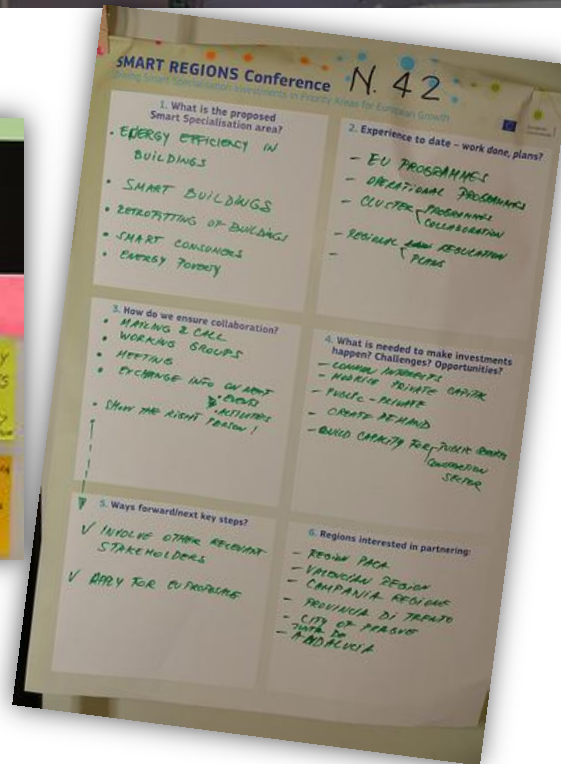 SMART REGIONS Conference N. 42
Driving Smart Specialisation Investments in Priority Areas for European Growth
1. What is the proposed
Smart Specialisation area?
• ENERGY EFFICIENCY IN
BUILDINGS
• SMART BUILDINGS
• RETROFITTING OF BUILDINGS
• SMART CONSUMERS
• ENERGY POVERTY
2. Experience to date – work done, plans?
- EU PROGRAMMES
- OPERATIONAL PROGRAMMES
- CLUSTER PROGRAMMES
COLLABORATION
- REGIONAL REGULATION
PLANS
-
3. How do we ensure collaboration?
• MAILING & CALL
• WORKING GROUPS
• MEETING
• EXCHANGE INFO ON
• EVENTS
• ACTIVITIES
• SHOW THE RIGHT PERSON!
4. What is needed to make investments
happen? Challenges? Opportunities?
- COMMON INTERESTS
- PRIVATE CAPITAL
- PUBLIC-PRIVATE
- CREATE DEMAND
- BUILD CAPACITY FOR PUBLIC
CONSTRUCTION
SECTOR
5. Ways forward/next key steps?
✓ INVOLVE OTHER RELEVANT
STAKEHOLDERS
✓ APPLY FOR EU PROPOSALS
6. Regions interested in partnering:
- REGION PACA
- VALENCIAN REGION
- CAMPANIA REGIONE
- PROVINCIA DI TRENTO
- CITY OF PRAGUE
JUNTA DE
- ANDALUCIA